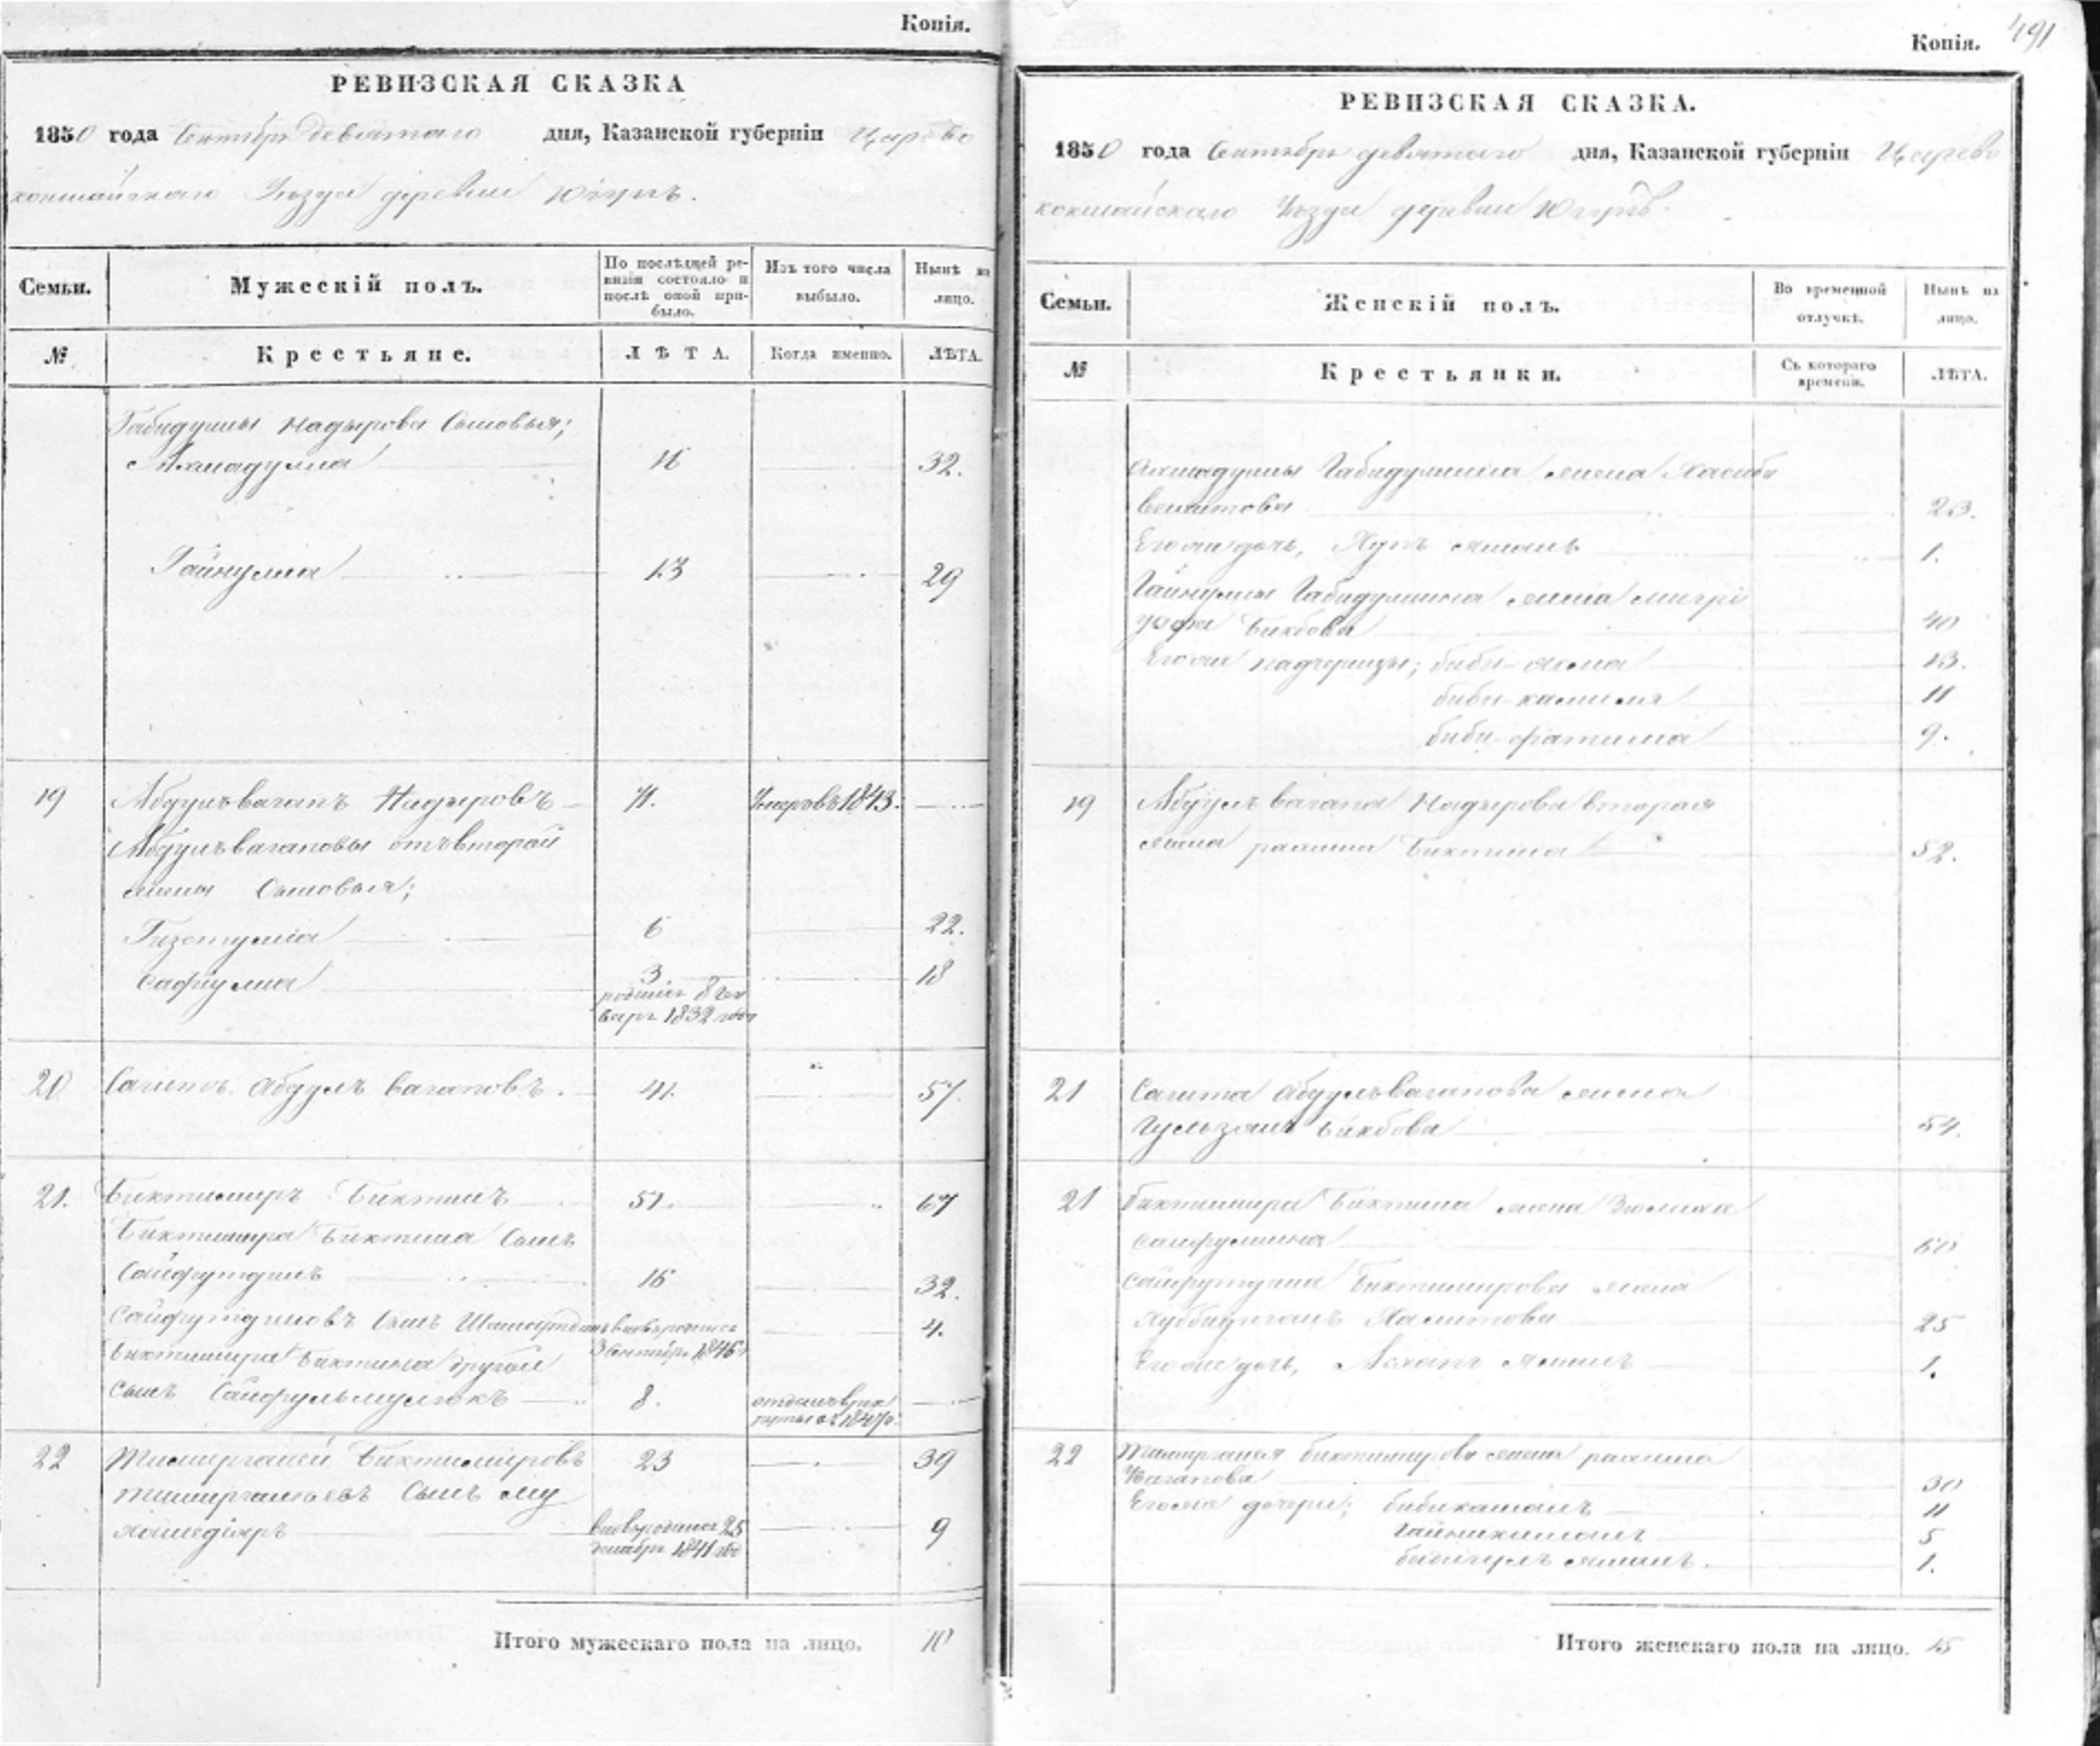 Копія.
РЕВИЗСКАЯ СКАЗКА
1850 года Сентября девятаго дня, Казанской губерніи Царево
кокшайскаго Уѣзда деревни Югупъ.
Семьи. Мужескій полъ. По послѣдней ревизіи состояло и послѣ оной прибыло. Изъ того числа выбыло. Нынѣ на лицо.
№ Крестьяне. ЛѢТА. Когда именно. ЛѢТА.
Габидуллы Надырова Сыновья;
Ахмадулла 16 32.
Гайнулла 13 29
19 Абдулъвагапъ Надыровъ 71. Умеръ въ 1843.
Абдулъвагаповы отъ второй
жены Сыновья;
Гизетулла 6 22.
Сафіулла 3 18
родился 8 Ген
варя 1832 года
20 Сагитъ Абдулъ вагаповъ. 41. 57.
21. Биктимиръ Биктинъ 51. 67
Биктимира Биктина Сынъ
Сайфутдинъ 16 32.
Сайфутдиновъ Сынъ вновь родился 4.
Биктимира Биктина другой 3 Сентября 1846
сынъ Сайфульмулюкъ 8. отданъ в рек
руты въ 1847
22 Тимиргалей Биктимировъ 23 39
Тимиргальевъ Сынъ Му
хамедіяръ вновь родился 25 9
декабря 1841 го
Итого мужескаго пола на лицо. 10
Копія. 491
РЕВИЗСКАЯ СКАЗКА.
1850 года Сентября девятаго дня, Казанской губерніи Царево
кокшайскаго Уѣзда деревни Югупъ.
Семьи. Женскій полъ. Во временной отлучкѣ. Нынѣ на лицо.
№ Крестьянки. Съ котораго времени. ЛѢТА.
Ахмадуллы Габидуллина жена Хасиба
23.
Его же дочь, жамалъ 1.
Гайнуллы Габидуллина жена
Бикбова 40
Его же падчерицы; биби-асма 13.
биби-камиля 11
биби-фатима 9.
19 Абдулъ вагапа Надырова вторая
жена рахима Биктина 52.
21 Сагита Абдулъвагапова жена
Гульзамъ Бикбова 54.
21 Биктимира Биктина жена Зюлиха
Сайфуллина 60
Сайфутдина Биктимирова жена
Хуббиджамалъ Халитова 25
Его же дочь, жамалъ 1.
22 Тимиргалея Биктимирова жена рахима
Вагапова 30
Его же дочери; бибикамалъ 11
Гайникамалъ 5
жамалъ. 1.
Итого женскаго пола на лицо. 15